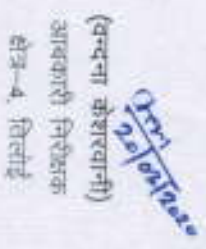 20/02/2020
(वन्दना केशरवानी)
आबकारी निरीक्षक
क्षेत्र-4, तिलोई